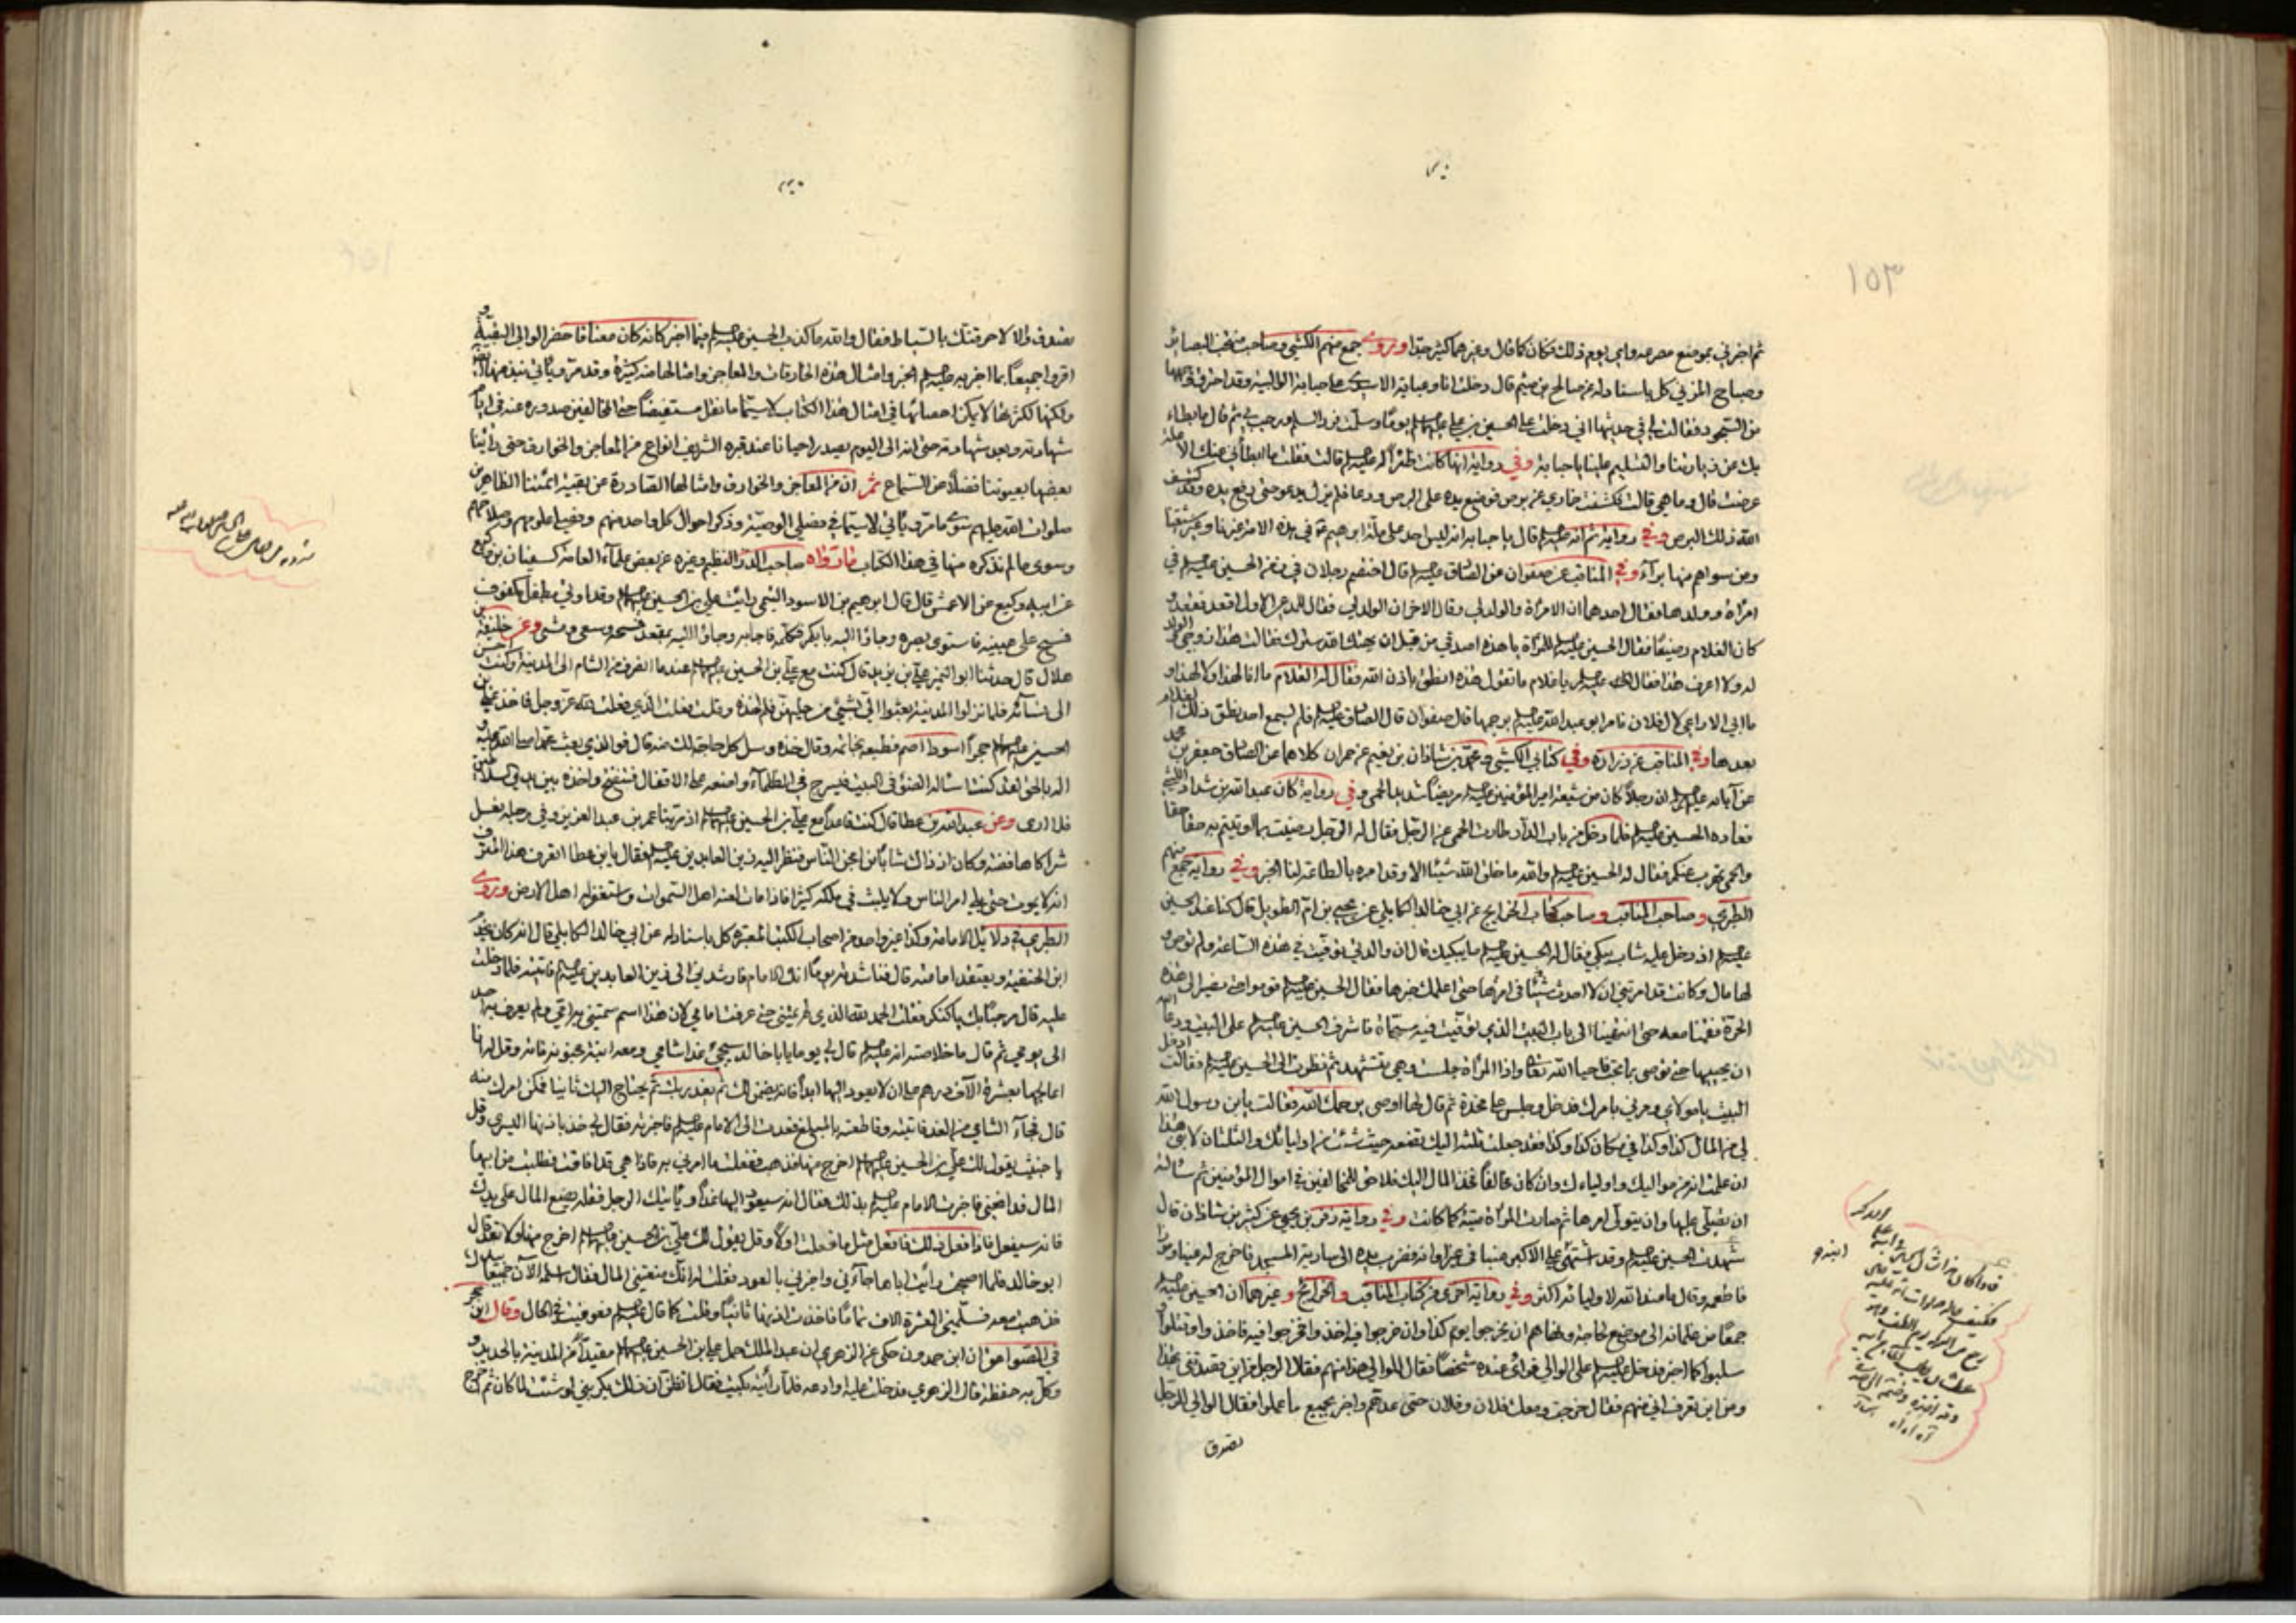 ١٥٣
ثم اخبرني بموضع مصرعه واي يوم ذلك فكان كما قال وغيرهما كثير جدا وروى جمع منهم الكشي وصاحب منتخب البصائر
وصباح المزني كل باسناد له عن صالح بن ميثم قال دخلت انا وعباية الاسدي على حبابة الوالبية وقد احترق وجهها
من السجود فقالت لي في حديثها اني دخلت على الحسين بن علي عليهما السلم يوما وسلمت فرد السلم ورحب بي ثم قال ما بطاء
بك عن زيارتنا والتسليم علينا يا حبابة وفي رواية انها كانت قالت فقلت ما ابطأني عنك الا علة
عرضت قال وما هي قالت فكشفت خماري عن برص فوضع يده على البرص ودعا فلم يزل يدعو حتى رفع يده وقد كشف
الله ذلك البرص وفي رواية ثم انه عليه السلم قال يا حبابة انه ليس احد على ملة ابرهيم في هذه الامة غيرنا وغير شيعتنا
ومن سواهم منها برآء وفي المناقب عن صفوان عن الصادق عليه السلم قال اختصم رجلان في زمن الحسين عليه السلم في
امرأة وولدها فقال احدهما ان الامرأة والولد لي وقال الاخر ان الولد لي فقال للمدعي الاول اقعد فقعد و
كان الغلام رضيعا فقال الحسين عليه السلم للمرأة يا هذه اصدقي من قبل ان يهتك الله سترك فقالت هذا زوجي والولد
له ولا اعرف هذا فقال عليه السلم يا غلام ما تقول هذه انطق باذن الله فقال له الغلام ما انا لهذا ولا لهذا و
ما ابي الا راعي لآل فلان فامر ابو عبد الله عليه السلم برجمها قال صفوان قال الصادق عليه السلم فلم يسمع احد نطق ذلك الغلام
بعدها وفي المناقب عن زرارة وفي كتاب الكشي عن محمد بن شاذان بن نعيم عن حمران كلاهما عن الصادق جعفر بن محمد
عن آبائه عليهم السلم ان رجلا كان من شيعة امير المؤمنين عليه السلم مريضا شديد الحمى وفي رواية كان عبد الله بن شداد الليثي
فعاده الحسين عليه السلم فلما دخل من باب الدار طارت الحمى عن الرجل فقال له الرجل رضيت بما اوتيتم به حقا حقا
والحمى تهرب عنكم فقال له الحسين عليه السلم والله ما خلق الله شيئا الا وقد امره بالطاعة لنا الخبر وفي رواية جمع منهم
الطبري وصاحب المناقب وصاحب كتاب الخرايج عن ابي خالد الكابلي عن يحيى بن ام الطويل قال كنا عند الحسين
عليه السلم اذ دخل عليه شاب يبكي فقال له الحسين عليه السلم ما يبكيك قال ان والدتي توفيت في هذه الساعة ولم توص و
لها مال وكانت قد امرتني ان لا احدث شيئا في امرها حتى اعلمك خبرها فقال الحسين عليه السلم قوموا حتى نصير الى هذه
الحرة فقمنا معه حتى انتهينا الى باب البيت الذي توفيت فيه مسجاة فاشرف الحسين عليه السلم على البيت ودعا الله
ان يحييها حتى توصي بما تحب فاحيا الله تعالى واذا المرأة جلست وهي تتشهد ثم نظرت الى الحسين عليه السلم فقالت ادخل
البيت يا مولاي ومرني بامرك فدخل وجلس على مخدة ثم قال لها اوصي يرحمك الله فقالت يا بن رسول الله
لي من المال كذا وكذا في مكان كذا وكذا فقد جعلت ثلثه اليك تضعه حيث شئت من اوليائك والثلثان لابني هذا
ان علمت انه من مواليك واوليائك وان كان مخالفا فخذ المال اليك فلا حق للمخالفين في اموال المؤمنين ثم سألته
ان يصلي عليها وان يتولى امرها ثم صارت المرأة ميتة كما كانت وفي رواية بن يحيى عن كثير بن شاذان قال
شهدت الحسين عليه السلم وقد اشتهى علي الاكبر عنبا في غير اوانه فضرب بيده الى سارية المسجد فاخرج له عنبا وموزا
فاطعمه وقال ما عند الله لاوليائه اكثر وفي رواية اخرى من كتاب المناقب والخرائج وغيرهما ان الحسين عليه السلم
جمعا من غلمانه الى موضع لحاجة ونهاهم ان يخرجوا يوم كذا وان خرجوا فيه اخذ وافخرجوا فيه فاخذوا وقتلوا
سلبوا كما اخبر فدخل عليه السلم على الوالي فرأى عنده شخصا فقال للوالي هذا منهم فقال الرجل من اين قصدتني بهذا
ومن اين تعرف اني منهم فقال خرجت ومعك فلان وفلان حتى عدهم واخبر بجميع ما عملوا فقال الوالي للرجل
تصدق
تصدق والا لاحرقنك بالسياط فقال والله ما كذب الحسين عليه السلم فيما اخبر كانه كان معنا فاحضر الوالي البقية و
اقروا جميعا بما اخبر به عليه السلم الخبر وامثال هذه الخارقات والمعاجز وامثالها منه كثيرة وقد مر ويأتي نبذ منها
ولكنها لكثرتها لا يمكن احصائها في امثال هذا الكتاب لا سيما ما نقل مستفيضا حتى المخالفين صدوره عنه في ايام
شهادته وبعد شهادته حتى انه الى اليوم يصدر احيانا عند قبره الشريف انواع من المعاجز والخوارق حتى رأينا
بعضها بعيوننا فضلا عن السماع ثم ان من المعاجز والخوارق وامثالها الصادرة عن بقية ائمتنا الطاهرين
صلوات الله عليهم سوى ما مر ويأتي لا سيما في فصلي الوصية وذكر احوال كل واحد منهم
وسوى ما لم نذكره منها في هذا الكتاب ما رواه صاحب الدر النظيم وغيره عن بعض علماء العامة كسفيان بن وكيع
عن ابيه وكيع عن الاعمش قال قال ابرهيم بن الاسود التيمي رأيت علي بن الحسين عليهما السلم وقد اوتي بطفل مكفوف
فمسح على عينيه فاستوى بصره وجاؤا اليه بابكم فكلمه فاجابه وجاؤا اليه بمقعد فمسحه وسعى ومشى وعن خليفة بن
هلال قال حدثنا ابو النمير علي بن يزيد قال كنت مع علي بن الحسين عليهما السلم عندما انصرف من الشام الى المدينة وكنت احسن
الى نسائه فلما نزلوا المدينة بعثوا الي بشيء من حليهن فلم اخذه وقلت فعلت الذي فعلت لله عز وجل فاخذ علي بن
الحسين عليهما السلم حجرا اسود اصم فطبعه بخاتمه وقال خذه وسل كل حاجة لك منه قال فوالذي بعث محمدا صلى الله عليه و
اله بالحق لقد كنت اسأله الضوء في البيت فيسرج في الظلماء واضعه على الاقفال فتفتح واخذه بين يدي السلاطين
فلا ارى وعن عبد الله بن عطا قال كنت قاعدا مع علي بن الحسين عليهما السلم اذ مر بنا عمر بن عبد العزيز وفي رجليه نعل
شراكاها فضة وكان اذ ذاك شابا من امجن الناس فنظر اليه زين العابدين عليه السلم فقال يا بن عطا اترى هذا المترف
انه لا يموت حتى يلي امر الناس ولا يلبث في ملكه كثيرا فاذا مات لعنه اهل السموات واستغفر له اهل الارض وروى
الطبري في دلائل الامامة وكذا غير واحد من اصحاب الكتب المعتبرة كل باسناد له عن ابي خالد الكابلي قال انه كان يخدم
ابن الحنفية ويعتقد امامته قال فناشدته يوما انك الامام فارشدني الى زين العابدين عليه السلم فاتيته فلما دخلت
عليه قال مرحبا بك يا كنكر فقلت الحمد لله الذي لم يمتني حتى عرفت امامي لان هذا اسم سمتني به امي ولم يعرف به احد
الى يومي ثم قال ما خلاصته انه عليه السلم قال لي يوما يا ابا خالد سيجيء غدا شامي ومعه ابنة مجنونة فاته وقل له انا
اعالجها بعشرة الاف درهم على ان لا يعود اليها ابدا فانه يضمن لك ثم يغدر بك ثم يحتاج اليك ثانيا فمكن امرك منه
قال فجاء الشامي من الغد فاتيته وقاطعته بالمبلغ فغدوت الى الامام عليه السلم فاخبرته فقال لي خذ باذنها اليسرى وقل
يا خبيث يقول لك علي بن الحسين عليهما السلم اخرج منها فذهبت ففعلت ما امرني به فاذا هي قد افاقت فطلبت من ابيها
المال فدافعني فاخبرت الامام عليه السلم بذلك فقال انه سيعود اليها غدا ويأتيك الرجل فقل له يضع المال على يديك
فانه سيفعل فاذا فعل ذلك فافعل مثل ما فعلت اولا وقل يقول لك علي بن الحسين عليهما السلم اخرج منها ولا تعد قال
ابو خالد فلما اصبحت رأيت اباها جاءني واخبرني بالعود فقلت له انك منعتني المال فقال اسلمه الآن جميعا بيدك
فذهبت معه فسلمني العشرة الاف تماما فاخذت اذنها ثانيا وقلت كما قال عليه السلم فعوفيت في الحال وقال ابن حجر
في الصواعق ان ابن حمدون حكى عن الزهري ان عبد الملك حمل علي بن الحسين عليهما السلم مقيدا من المدينة بالحديد و
وكل به حفظة قال الزهري فدخلت عليه اودعه فلما رأيته بكيت فقال اتظن ان ذلك يكربني لو شئت لما كان ثم اخرج